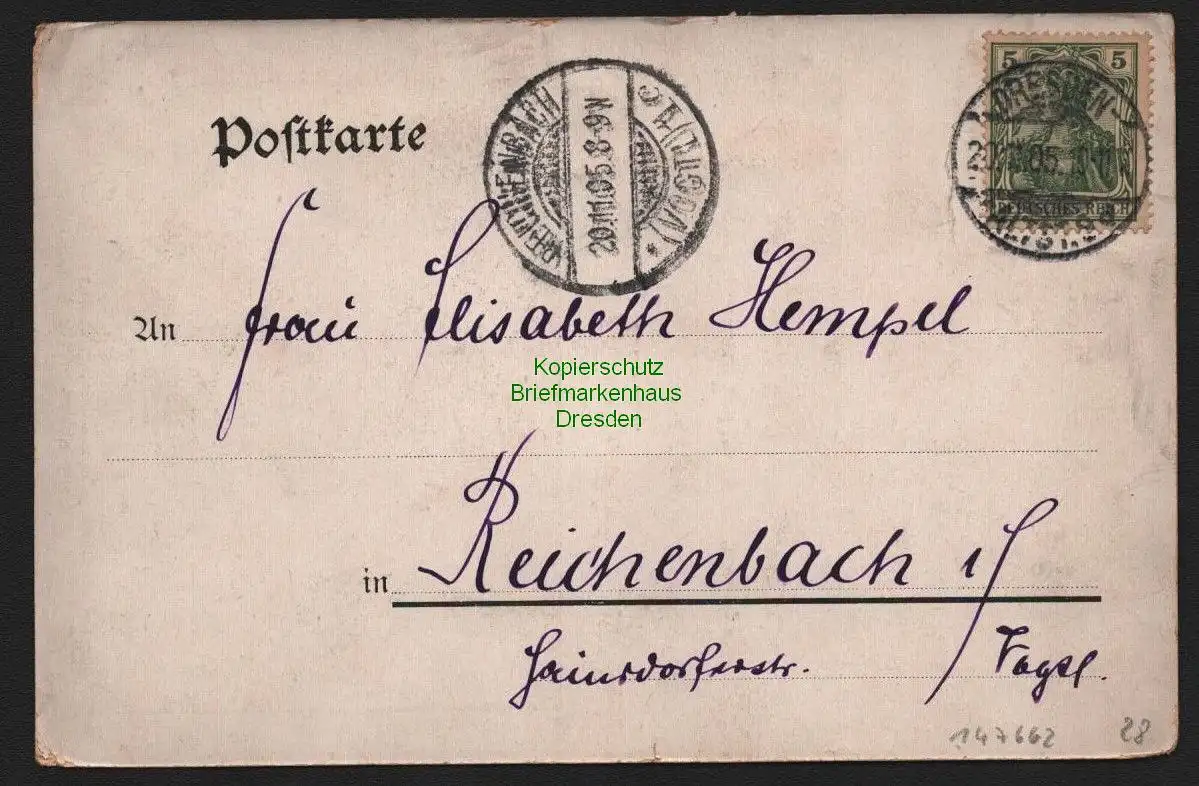 Poſtkarte
REICHENBACH
20.11.05.8-9N
*
5 5
DRESDEN
DEUTSCHES REICH
An Frau Elisabeth Hempel
Kopierschutz
Briefmarkenhaus
Dresden
in Reichenbach i/
Hainsdorferstr. Vogtl.
147662 28